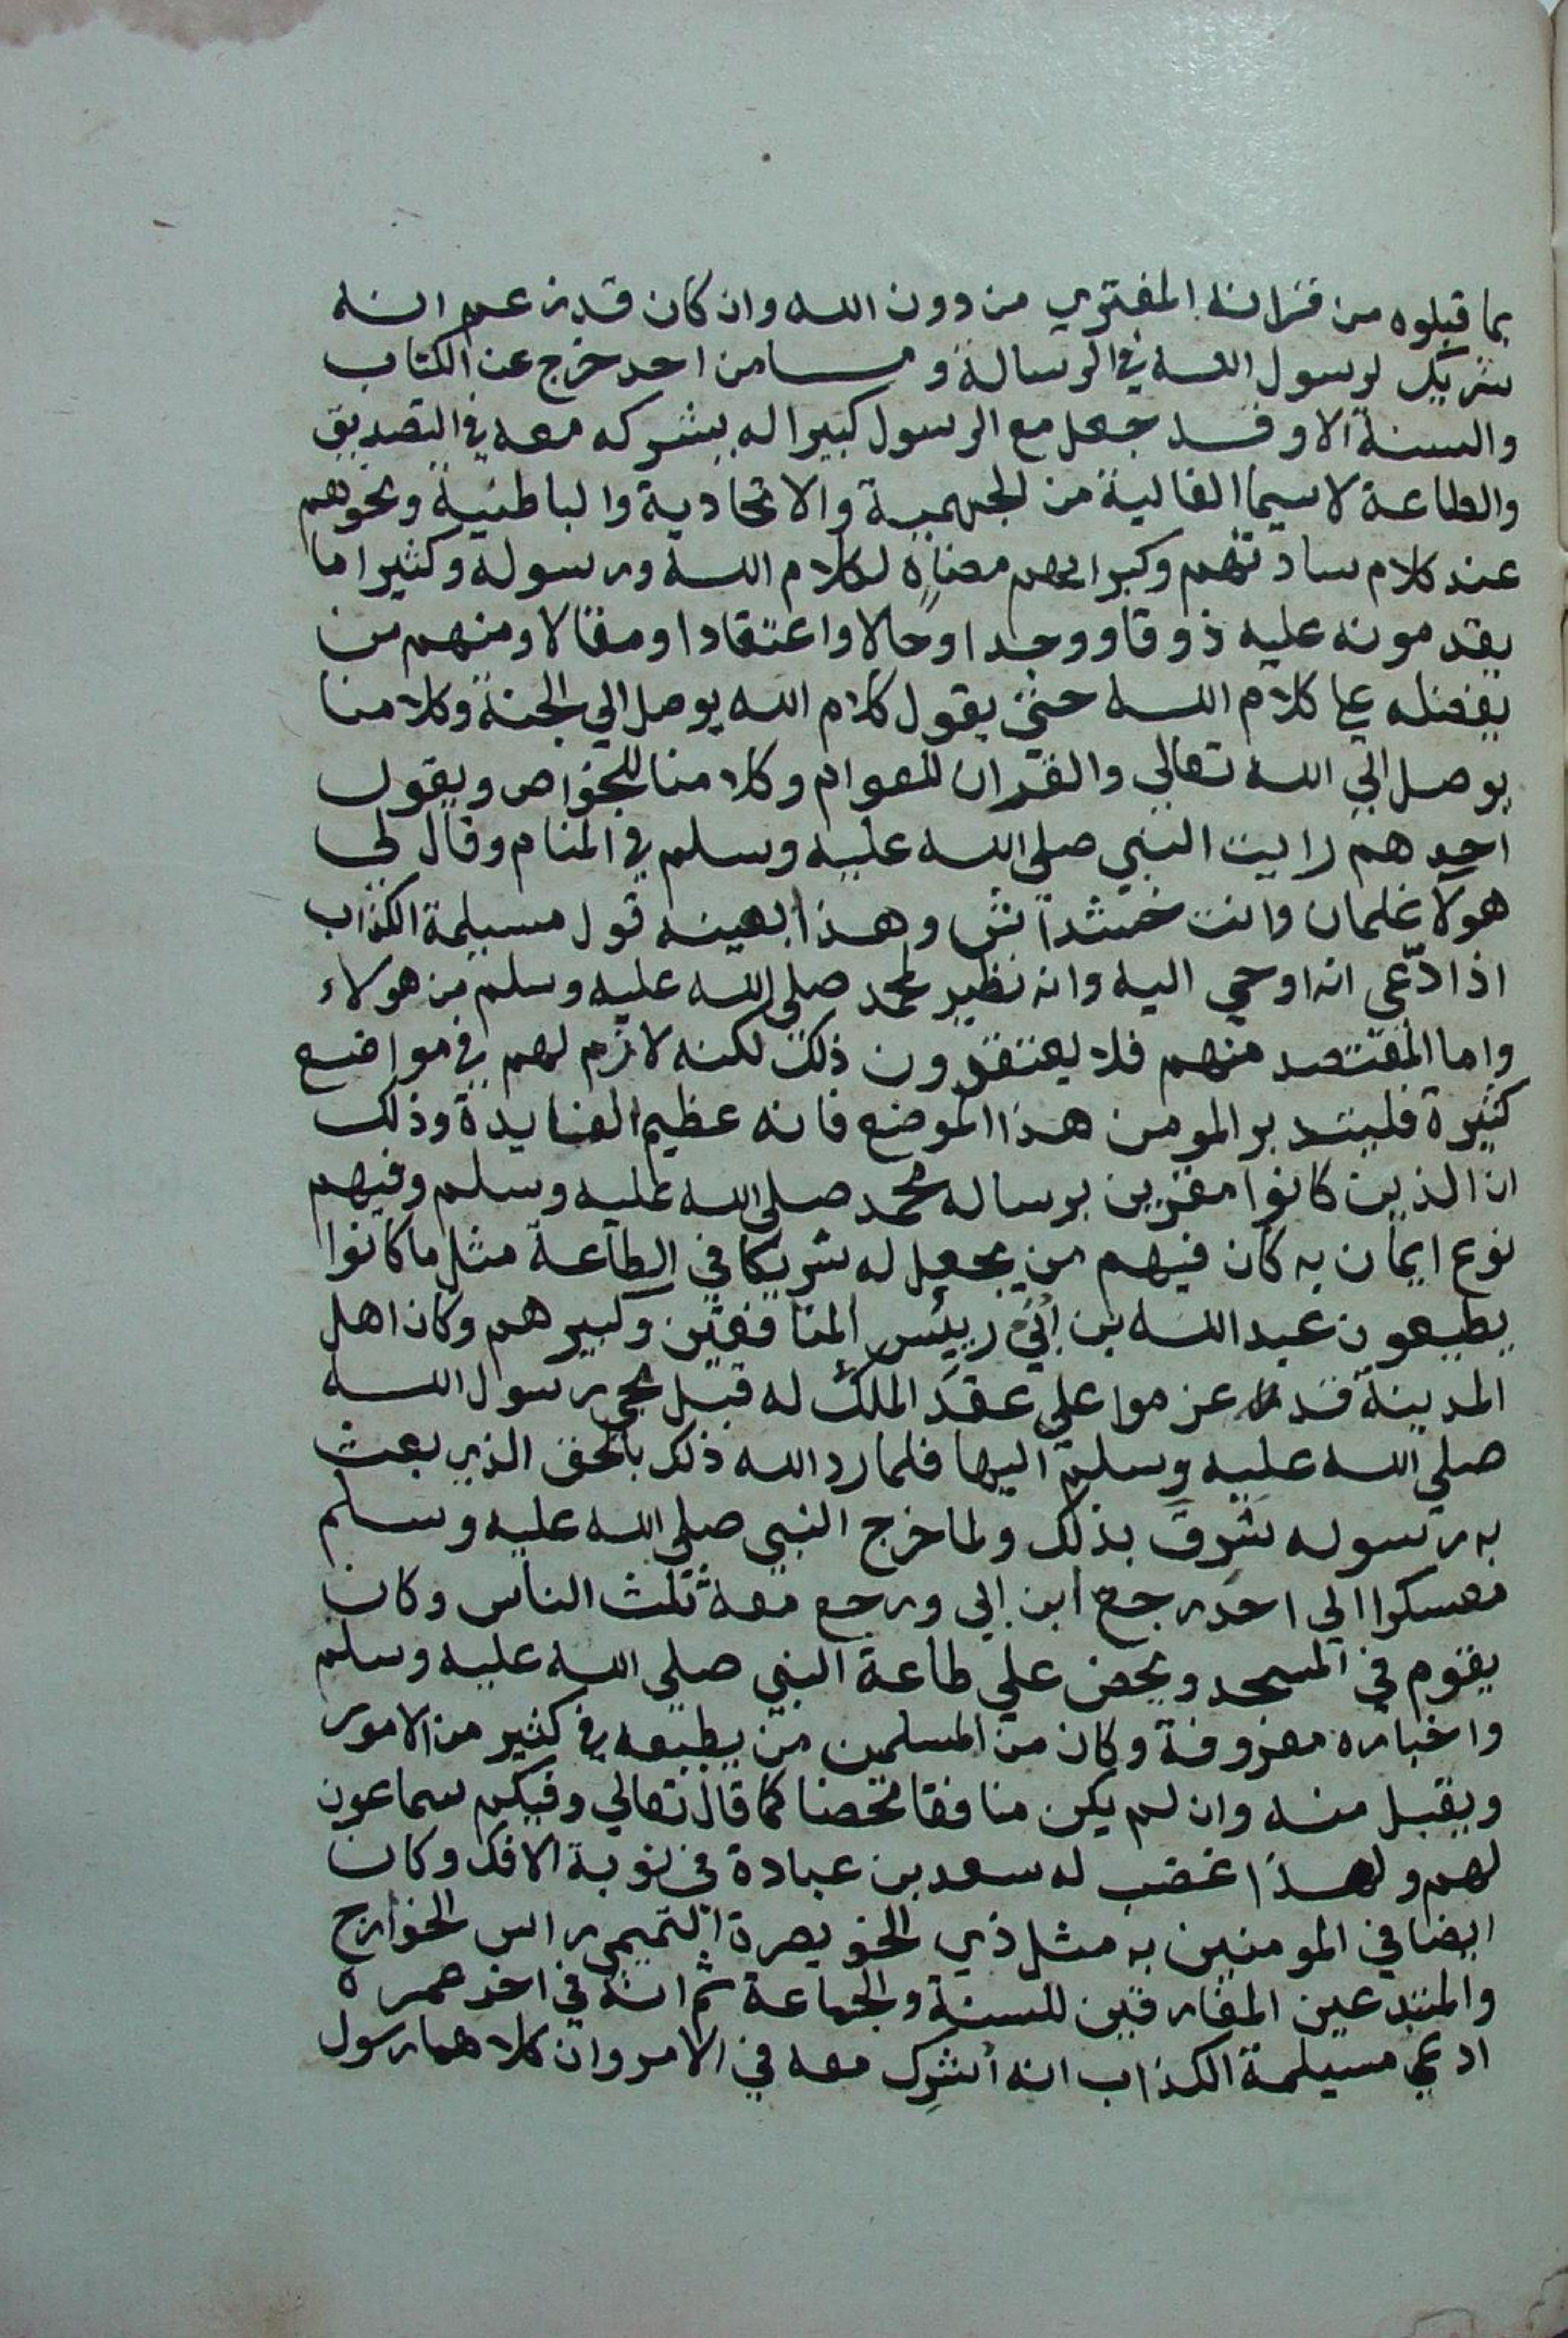 بما قبلوه من قرانه المفتري من دون الله وان كان قد زعم انه
شريك لرسول الله في الرسالة وما من احد خرج عن الكتاب
والسنة الا وقد جعل مع الرسول كبيرا له يشركه معه في التصديق
والطاعة لاسيما الغالية من الجهمية والاتحادية والباطنية ونحوهم
عند كلام سادتهم وكبرايهم مضاه لكلام الله ورسوله وكثيرا ما
يقدمونه عليه ذوقا ووجدا وحالا واعتقادا ومقالا ومنهم من
يفضله علي كلام الله حتي يقول كلام الله يوصل الي الجنة وكلامنا
يوصل الي الله تعالي والقران للعوام وكلامنا للخواص ويقول
احدهم رايت النبي صلي الله عليه وسلم في المنام وقال لي
هولا غلمان وانت خشداش وهذا بعينه قول مسيلمة الكذاب
اذ ادّعي انه اوحي اليه وانه نظير لمحمد صلي الله عليه وسلم من هولاء
واما المقتصد منهم فلا يعتقدون ذلك لكنه لازم لهم في مواضع
كثيرة فليتدبر المومن هذا الموضع فانه عظيم الفايدة وذلك
ان الذين كانوا مقرين برساله محمد صلي الله عليه وسلم وفيهم
نوع ايمان به كان فيهم من يجعل له شريكا في الطاعة مثل ما كانوا
يطيعون عبد الله بن أبي رييس المنافقين وكبيرهم وكان اهل
المدينة قد عزموا علي عقد الملك له قبل مجي رسول الله
صلي الله عليه وسلم اليها فلما رد الله ذلك بالحق الذي بعث
به رسوله شرق بذلك ولما خرج النبي صلي الله عليه وسلم
معسكرا الي احد رجع ابن ابي ورجع معه ثلث الناس وكان
يقوم في المسجد ويحض علي طاعة النبي صلي الله عليه وسلم
واخباره معروفة وكان من المسلمين من يطيعه في كثير من الامور
ويقبل منه وان لم يكن منافقا محضا كما قال تعالي وفيكم سماعون
لهم ولهذا غضب له سعد بن عبادة في نوبة الافك وكان
ايضا في المومنين به مثل ذي الخويصرة التميمي راس الخوارج
والمبتدعين المفارقين للسنة والجماعة ثم انه في اخر عمره
ادعي مسيلمة الكذاب انه أشرك معه في الامر وان كلاهما رسول